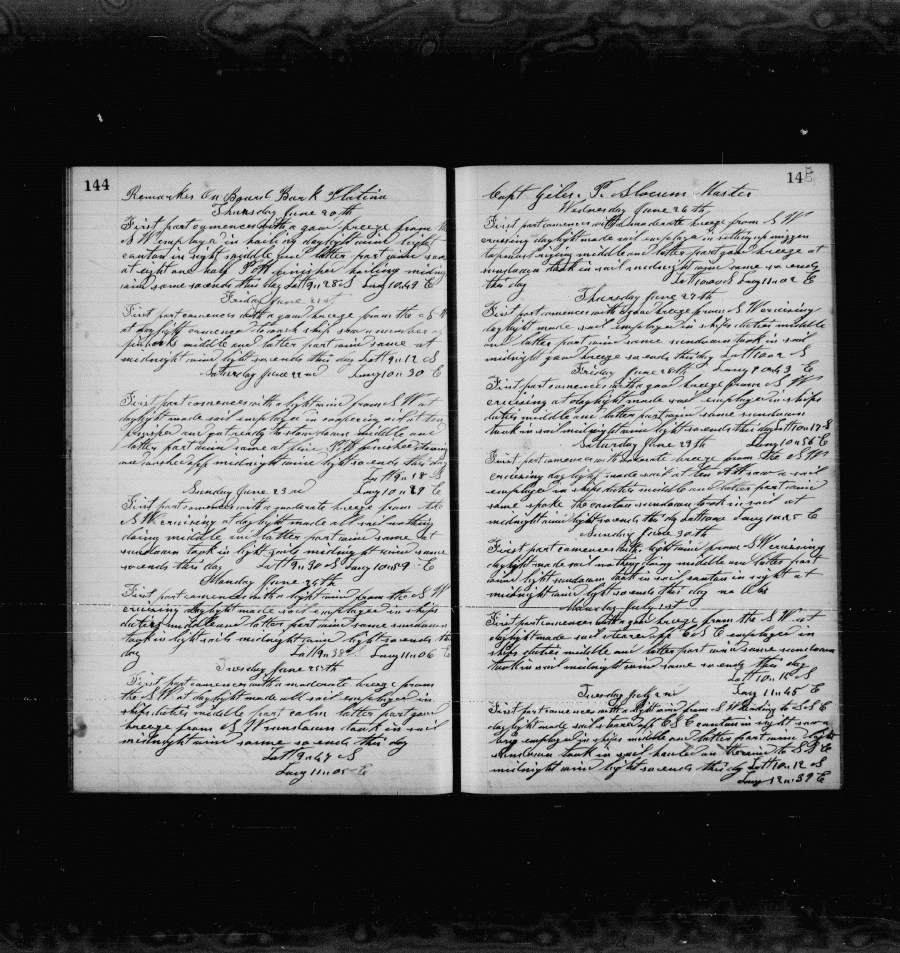 144
Remarkes On Board Bark Platina
Thursday June 20 th
First part comences with a gow breeze from the
S W employe in boiling daylight wine light
canton in sight middle and latter part wine same
at eight and half P M finisher boiling midnig
wine same so ends this day Latt 9 n 28 S Long 10 n 49 E
Friday June 21 st
First part comences with a gow breeze from the S W
at daylight comence to work ship saw a number of
finbacks middle and latter part wine same at
midnight wine light so ends this day Latt 9 n 12 S
Saturday June 22 nd Long 10 n 30 E
First part comences with a light wine from S W at
daylight made sail employee in coopering oil at ten
finisher and got ready to stow down middle and
latter part wine same at five P M finisher stowing
and washed off midnight wine light so ends this day
Latt 9 n 18 S
Sunday June 23 rd Long 10 n 29 E
First part comences with a moderate breeze from the
S W cruising at daylight made all sail nothing
doing middle and latter part wine same at
sundown took in light sails midnight wine same
so ends this day Latt 9 n 30 S Long 10 n 59 E
Monday June 24 th
First part comences with light wine from the S W
cruising daylight made sail employee in ships
duties middle and latter part wine same sundown
took in light sails midnight wine light so ends this
day Latt 9 n 38 S Long 11 n 06 E
Tuesday June 25 th
First part comences with a moderate breeze from
the S W at daylight made all sail employee in
ships duties middle part calm latter part gow
breeze from S W sundown took in sail
midnight wine same so ends this day
Latt 9 n 47 S
Long 11 n 05 E
145
Capt Giles. P. Slocum Master
Wednesday June 26 th
First part comences with a moderate breeze from S W
cruising daylight made sail employe in setting up mizzen
topmast riging middle and latter part gow breeze at
sundown took in sail midnight wine same so ends
this day Latt 10 n 00 S Long 11 n 02 E
Thursday June 27 th
First part comences with a gow breeze from S W cruising
daylight made sail employed in ships duties middle
and latter part wine same sundown took in sail
midnight gow breeze so ends this day Latt 10 n 2 S
Friday June 28 th Long 9 n 43 E
First part comences with a gow breeze from S W
cruising at daylight made sail employee in ships
duties middle and latter part wine same sundown
took in sail midnight wine light so ends this day Latt 10 n 17 S
Saturday June 29 th Long 10 n 56 E
First part comences with moderate breeze from the S W
cruising daylight made sail at ten A M saw a sail
employee in ships duties middle and latter part wine
same spoke the canton sundown took in sail at
midnight wine light so ends this day Long E
Sunday June 30 th
First part comences with light wine from S W cruising
daylight made sail nothing doing middle and latter part
wine light sundown took in sail canton in sight at
midnight wine light so ends this day no Obs
Monday July 1 st
First part comences with a gow breeze from the S W at
daylight made sail steared off E S E employee in
ships duties middle and latter part wine same sundown
took in sail midnight wine same so ends this day
Latt 10 n 10 S
Tuesday July 2 nd Long 11 n 45 E
First part comences with a light wine from S W heading to S S E
daylight made sail steared off E S E canton in sight saw a
brig employed in ships middle and latter part wine light
Sundown took in sail hauled on the wine to S S E
midnight wine light so ends this day Latt 10 n 12 S
Long 12 n 39 E